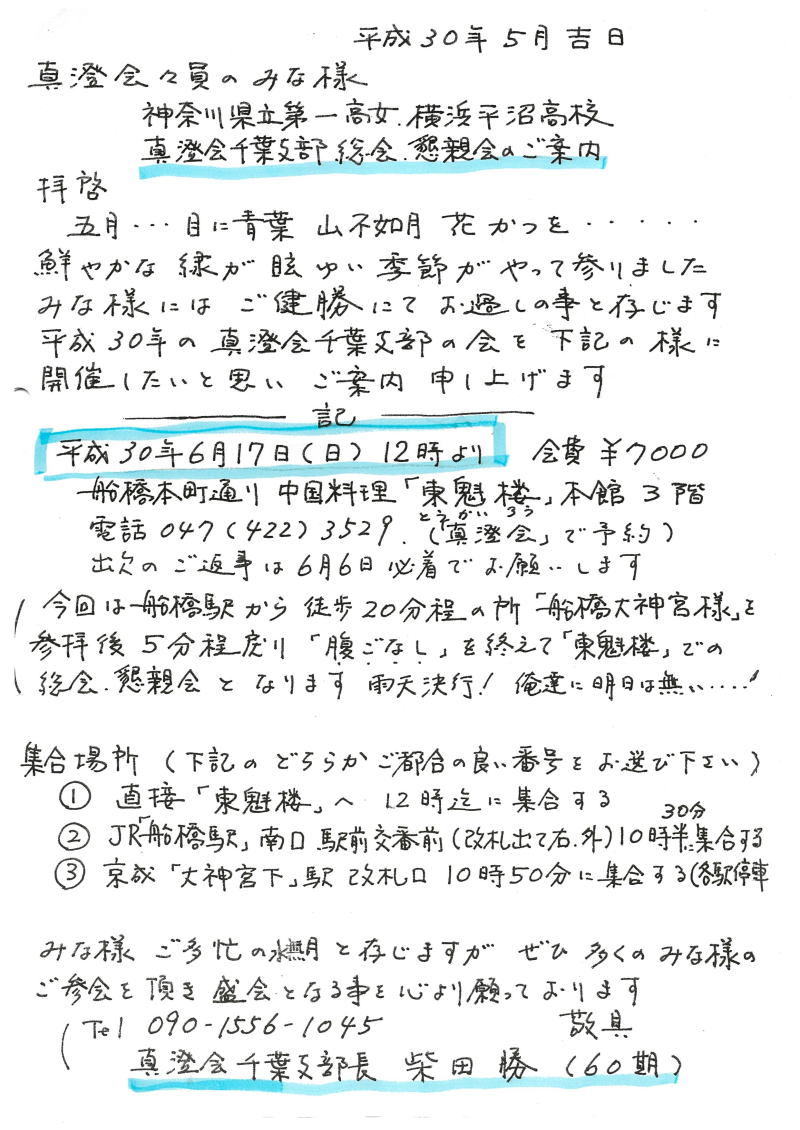 平成30年5月吉日
真澄会々員のみな様
神奈川県立第一高女.横浜平沼高校
真澄会千葉支部総会.懇親会のご案内
拝啓
五月・・・目に青葉 山不如月 花かつを・・・・・
鮮やかな緑が眩ゆい季節がやって参りました
みな様には ご健勝にて お過しの事と存じます
平成30年の真澄会千葉支部の会を下記の様に
開催したいと思い ご案内申し上げます
記
平成30年6月17日(日) 12時より 会費¥7000
船橋本町通り 中国料理「東魁楼」本館3階
とうかいろう
電話047(422)3529.(「真澄会」で予約)
出欠のご返事は6月6日必着でお願いします
(今回は船橋駅から徒歩20分程の所「船橋大神宮様」を
参拝後5分程戻り「腹ごなし」を終えて「東魁楼」での
総会.懇親会となります 雨天決行! 俺達に明日は無い・・・・!
集合場所(下記のどちらかご都合の良い番号をお選び下さい)
① 直接「東魁楼」へ 12時迄に集合する
② JR「船橋駅」南口 駅前交番前(改札出て右.外)10時半に集合する
30分
③ 京成「大神宮下」駅 改札口 10時50分に集合する(各駅停車
みな様 ご多忙の水無月と存じますが ぜひ多くのみな様の
ご参会を頂き盛会となる事を心より願っております
(Tel 090-1556-1045 敬具
真澄会千葉支部長 柴田勝(60期)